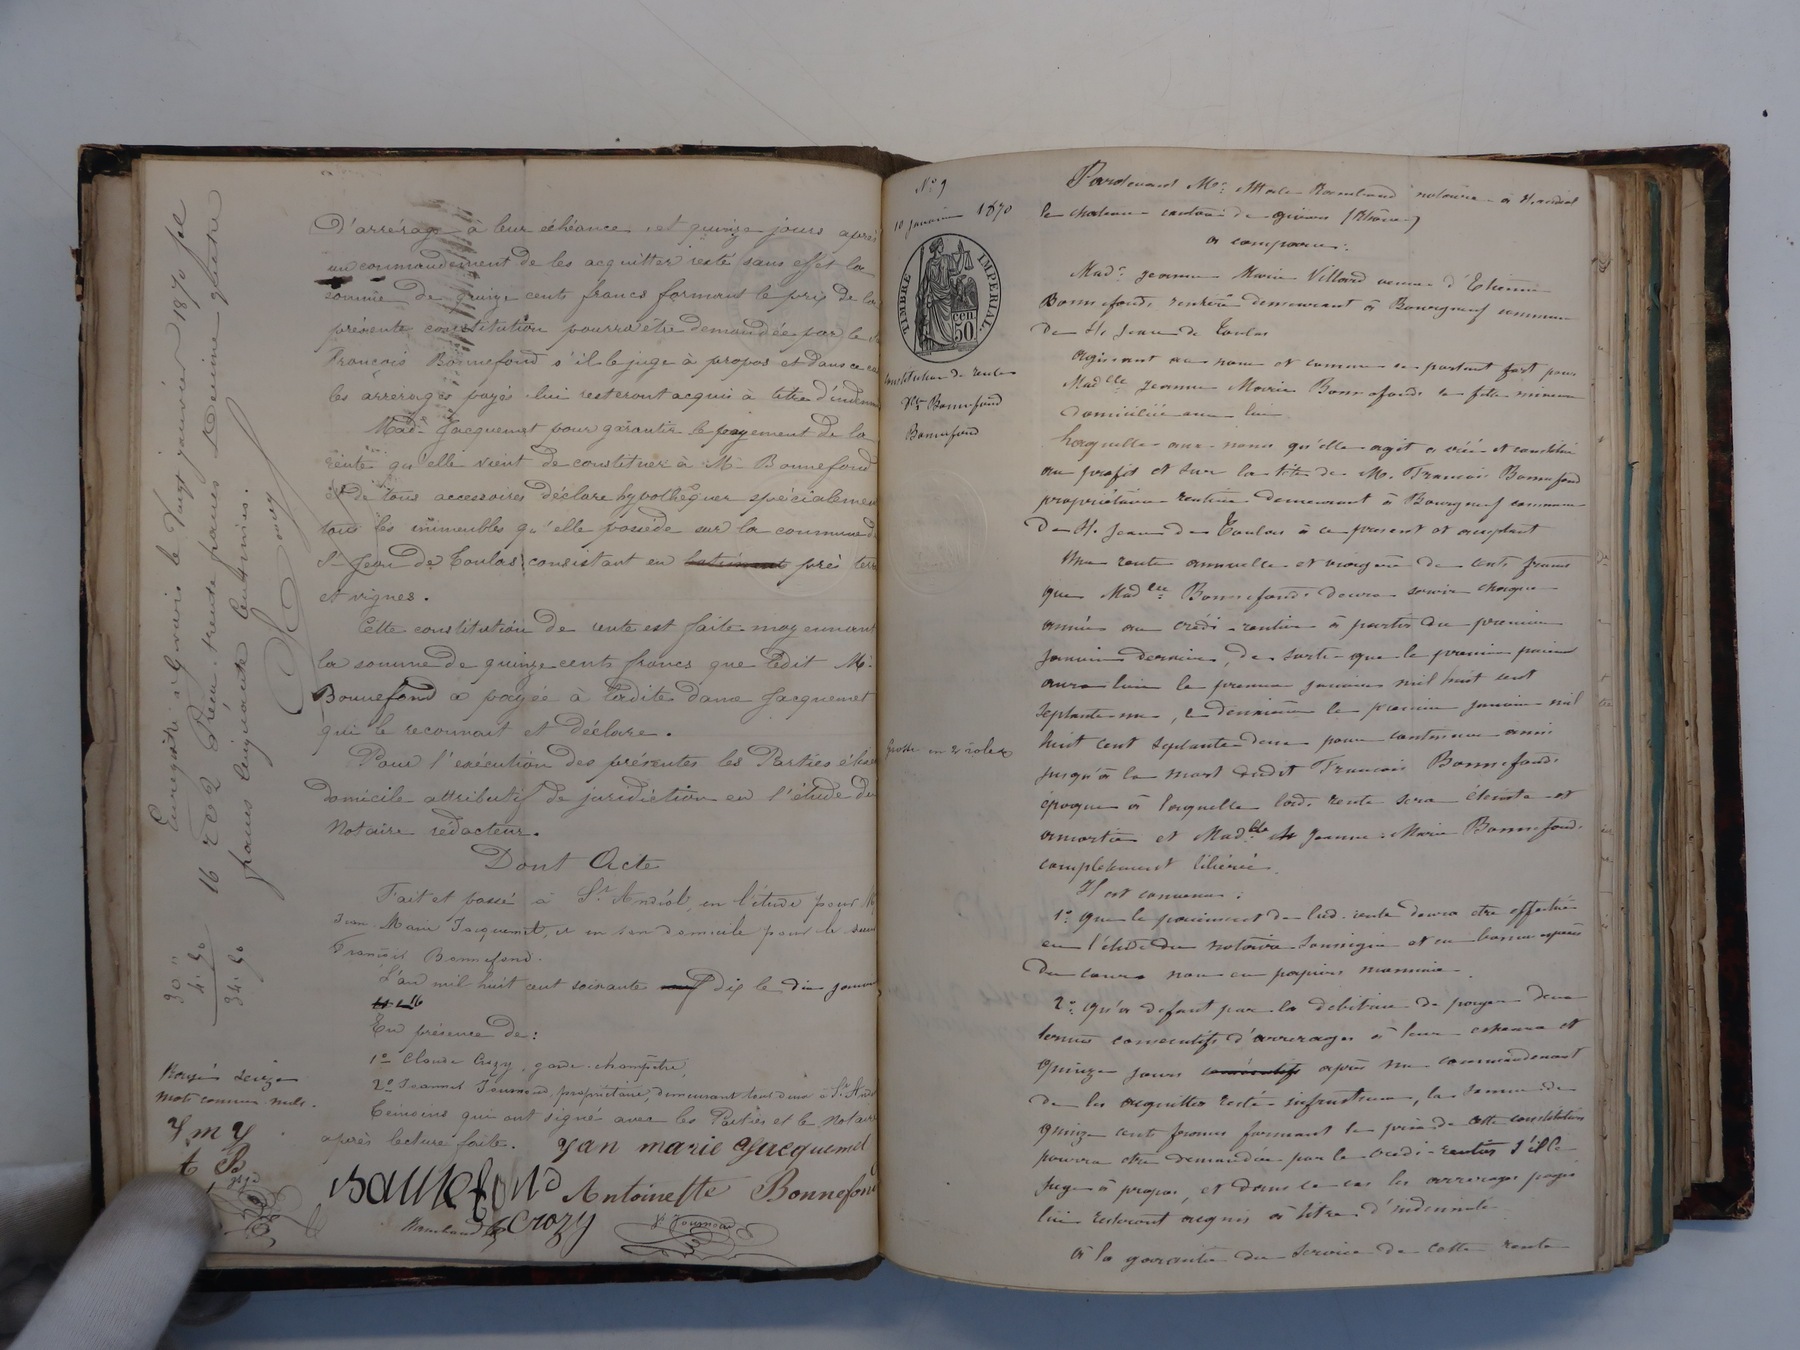 D'arrérage à leur échéance, et quinze jours après
un commandement de les acquitter resté sans effet la
somme de quinze cents francs formant le prix de la
présente constitution pourra être demandée par le
François Bonnefond s'il le juge à propos et dans ce cas
les arrérages payés lui resteront acquis à titre d'indem
Made Jacquemet pour garantir le payement de la
rente qu'elle vient de constituer à Mr Bonnefond
et de tous accessoires déclare hypothéquer spécialement
tous les immeubles qu'elle possède sur la commune de
St Jean de Toulas consistant en batiment prés terre
et vignes.
Cette constitution de rente est faite moyennant
la somme de quinze cents francs que ledit Mr
Bonnefond a payée à ladite dame Jacquemet
qui le reconnait et déclare.
Pour l'exécution des présentes les Parties élisent
domicile attributif de juridiction en l'étude du
Notaire rédacteur.
Dont Acte
Fait et passé à St Andéol, en l'étude pour
Jean Marie Jacquemet, et en son domicile pour le sieur
François Bonnefond.
L'an mil huit cent soixante dix le dix janvier
En présence de :
1o Claude Crozy, garde-champêtre,
2o Jeannet Journoud, propriétaire, demeurant tous deux à St Andéol
témoins qui ont signé avec les Parties et le Notaire
après lecture faite. Jan marie Jacquemet
Bonnefond Antoinette Bonnefond
Rambaud Crozy Jt Journoud
Enregistré à Givors le Vingt janvier 1870 fol
16 Reçu trente francs décime quatre
francs cinquante centimes.
30 "
4.50
34.50
Rayés seize
mots comme nuls.
No 9
10 Janvier 1870
TIMBRE IMPERIAL
50 cen.
Constitution de rente
Bonnefond
Bonnefond
Grosse en 2 roles
Pardevant Me Rambaud notaire à St Andéol
le chateau canton de givors (Rhône)
a comparu :
Made Jeanne Marie Villard veuve d'Etienne
Bonnefonds rentière demeurant à Bourgneuf commune
De St Jean de Toulas
Agissant au nom et comme se portant fort pour
Madelle Jeanne Marie Bonnefonds sa fille mineure
domiciliée avec lui
Laquelle aux noms qu'elle agit a créé et constitué
au profit et sur la tête de M. François Bonnefond
propriétaire rentier demeurant à Bourgneuf commune
De St Jean de Toulas à ce présent et acceptant
Une rente annuelle et viagère de cents francs
que Madelle Bonnefonds devra servir chaque
année au crédi-rentier à partir du premier
janvier dernier, de sorte que le premier paiement
aura lieu le premier janvier mil huit cent
septante un, le deuxième le premier janvier mil
huit cent septante deux pour continuer ainsi
jusqu'à la mort dudit François Bonnefonds
époque à laquelle lade rente sera éteinte et
amortie et Madelle Jeanne Marie Bonnefond
complètement libérée.
Il est convenu :
1o Que le paiement de lade rente devra etre effectué
en l'étude du notaire soussigné et en bonnes espèces
du cours non en papiers monnaie.
2o Qu'à défaut par la débitrice de payer deux
termes consécutifs d'arrerages à leur echeance et
quinze jours consécutifs après un commandement
de les acquitter resté infructueux, la somme de
quinze cents francs formant le prix de cette constitution
pourra etre demandée par le credi-rentier s'il le
juge à propos, et dans ce cas les arrerages payés
lui resteront acquis à titre d'indemnité
à la garantie du service de cette rente